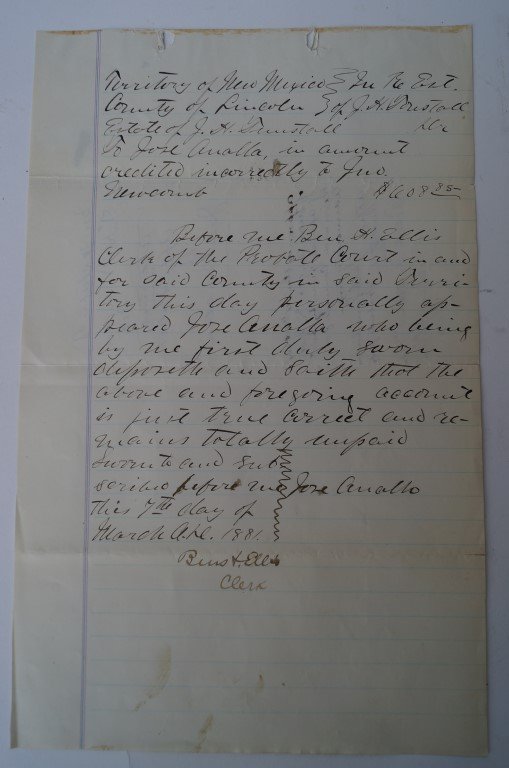 Territory of New Mexico } In the Est.
County of Lincoln } of J. H. Tunstall
Estate of J. H. Tunstall Dr
To Jose Analla, in amount
credited incorrectly to Jno.
Newcomb $608.85
Before me Ben H. Ellis
Clerk of the Probate Court in and
for said County in said Terri-
tory this day personally ap-
peared Jose Analla who being
by me first duly sworn
deposeth and saith that the
above and foregoing account
is just true correct and re-
mains totally unpaid
Sworn to and sub
scribed before me Jose Analla
this 7th day of
March A.D. 1881.
Ben H. Ellis
Clerk